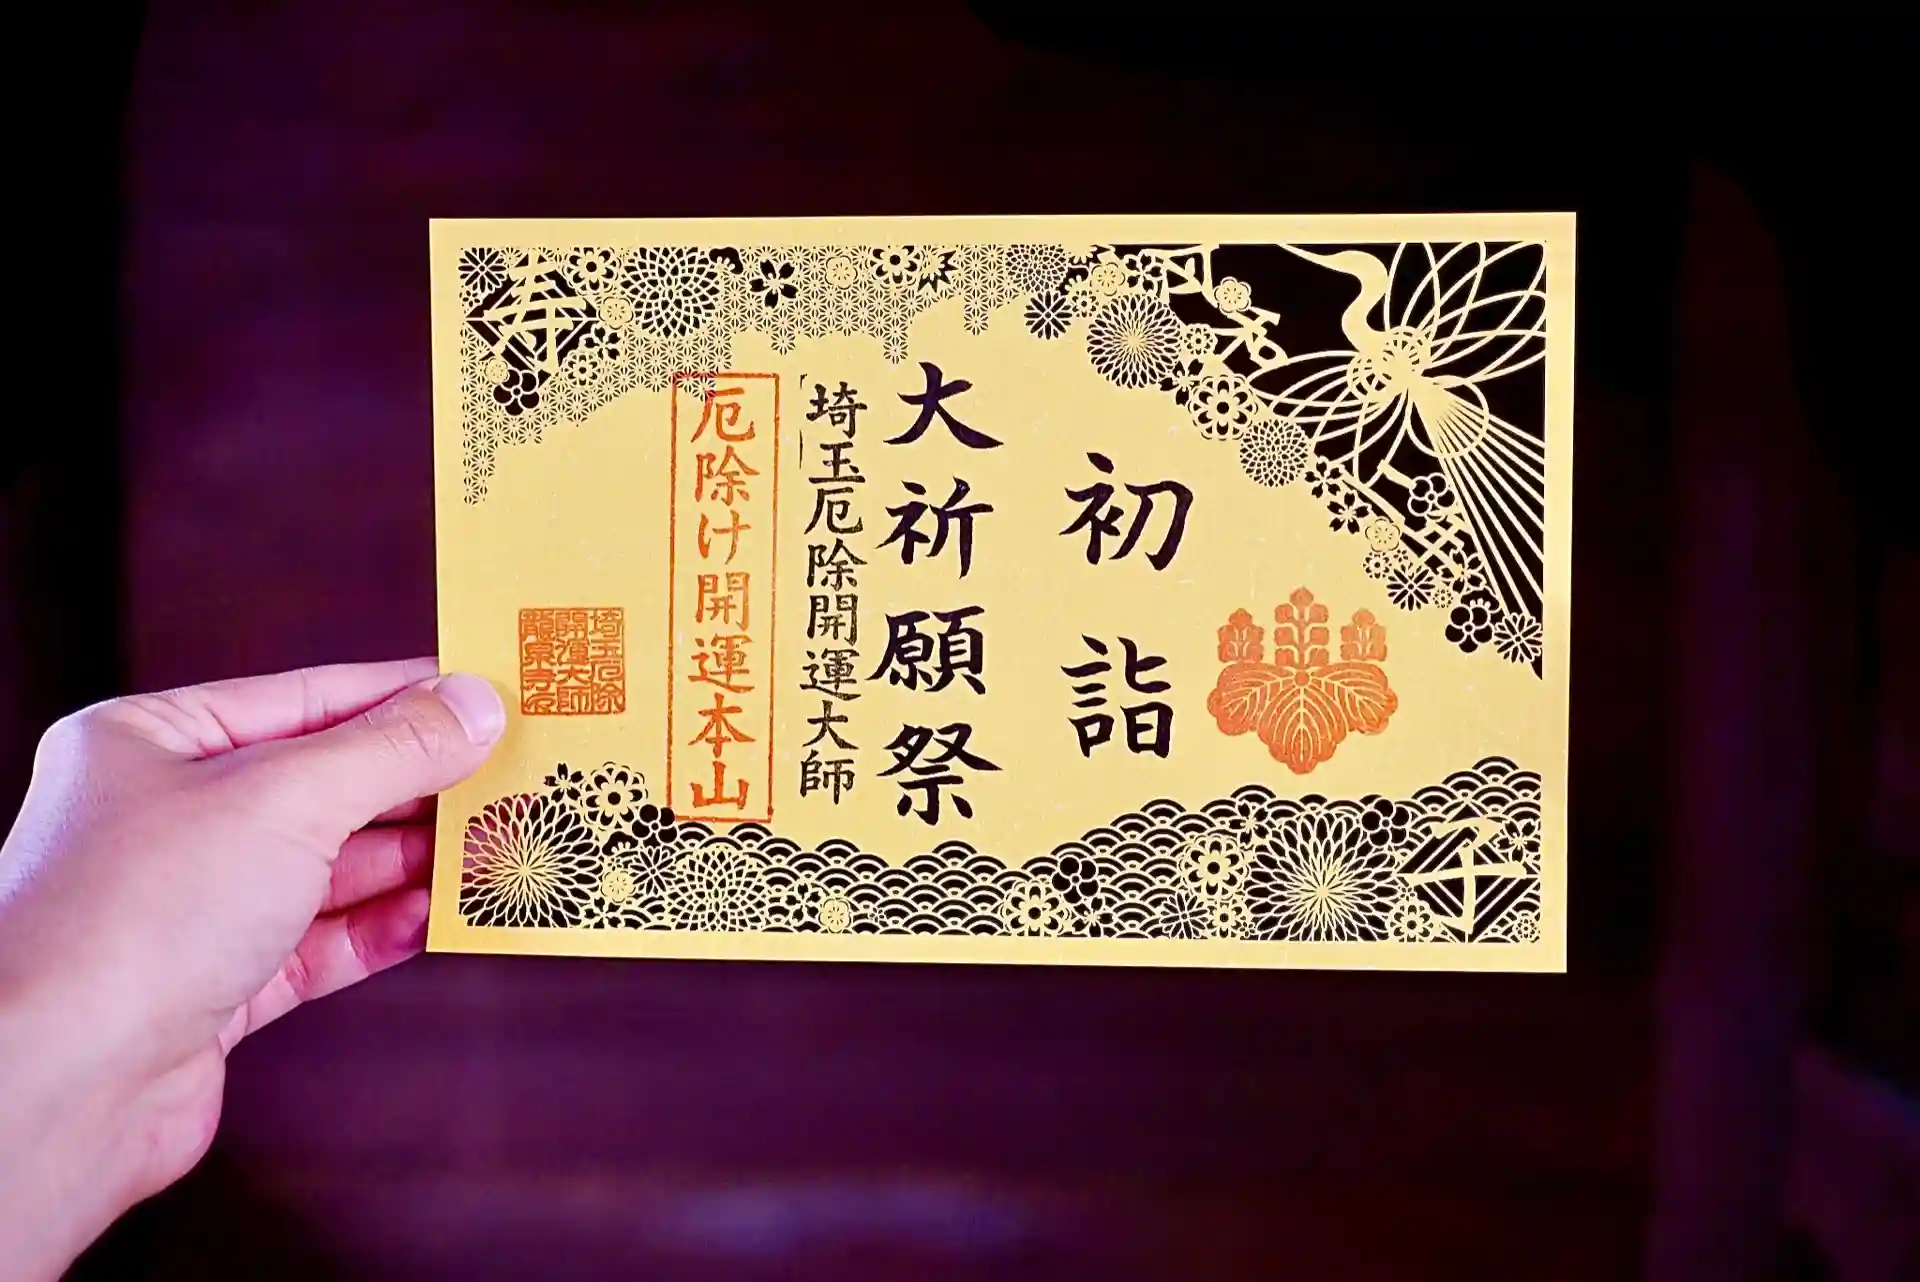 令和
初詣
大祈願祭
埼玉厄除開運大師
厄除け開運本山
寿
埼玉厄除
開運大師
龍泉寺印
子